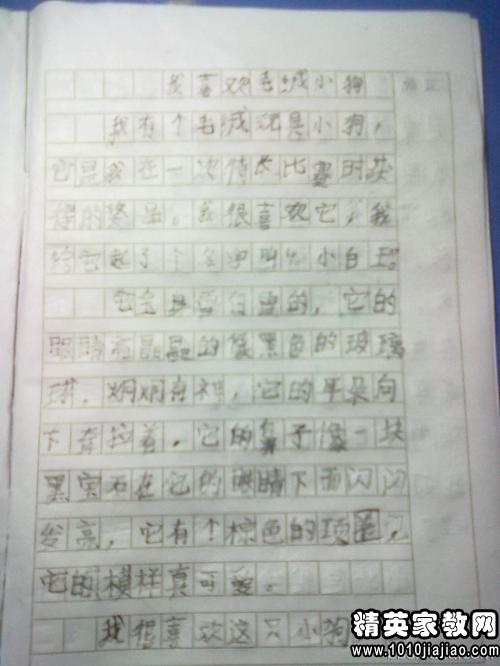 我喜欢毛绒小狗
我有个毛绒玩具小狗，
它是我在一次特长比赛时获
得的奖品，我很喜欢它，我
给它起了个名字叫做小白球
它全身雪白雪白的，它的
眼睛亮晶晶的像黑色的玻璃
球，炯炯有神，它的耳朵向
下耷拉着，它的鼻子像一块
黑宝石在它的眼睛下面闪闪
发亮，它有个棕色的项圈，
它的模样真可爱。
我很喜欢这只小狗
精英家教网
www.1010jiajiao.com